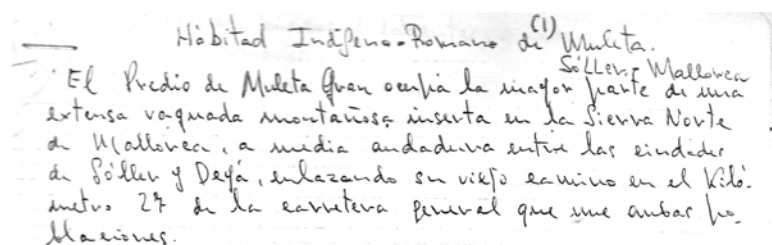 Hábitad Indígeno-Romano de (1) Muleta.
Sóller-Mallorca
El Predio de Muleta Gran ocupia la mayor parte de una
extensa vaguada montañosa inserta en la Sierra Norte
de Mallorca, a media andadura entre las ciudades
de Sóller y Deyá, enlazando su viejo camino en el Kiló-
metro 27 de la carretera general que une ambas po-
blaciones.